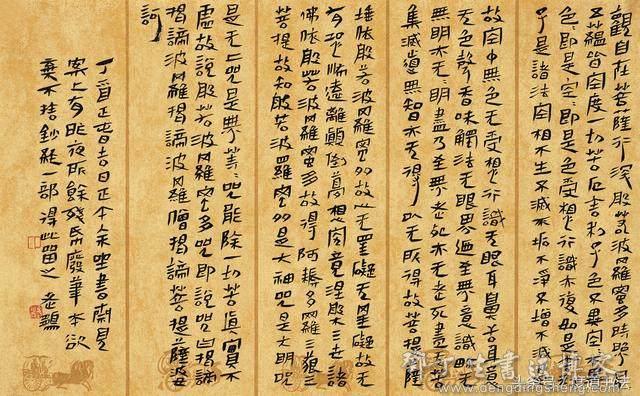 觀自在菩薩行深般若波羅蜜多時照見
五蘊皆空度一切苦厄舍利子色不異空
色即是空空即是色受想行識亦復如是舍
子是諸法空相不生不滅不垢不淨不增不減
故空中無色无受想行識无眼耳鼻舌身意
无色聲香味觸法无眼界廼至無意識界
無明亦无无明盡乃至無老死亦无老死盡无苦
集滅道無智亦无得以无所得故菩提薩
埵依般若波羅蜜多故心无罣礙无罣礙故无
有恐怖遠離顛倒夢想究竟涅槃三世諸
佛依般若波羅蜜多故得阿耨多羅三藐三
菩提故知般若波羅蜜多是大神咒是大明咒
是无上咒是無等等咒能除一切苦真實不
虛故說般若波羅蜜多咒即說咒曰揭諦
揭諦波羅揭諦波羅僧揭諦菩提薩婆
訶
丁亥正春吉日正午余坐書齋見
案上有昨夜所餘殘紙廢筆本欲
棄不捨鈔經一部得此留之
鄧丁生書画博客
www.dengdingsheng.com